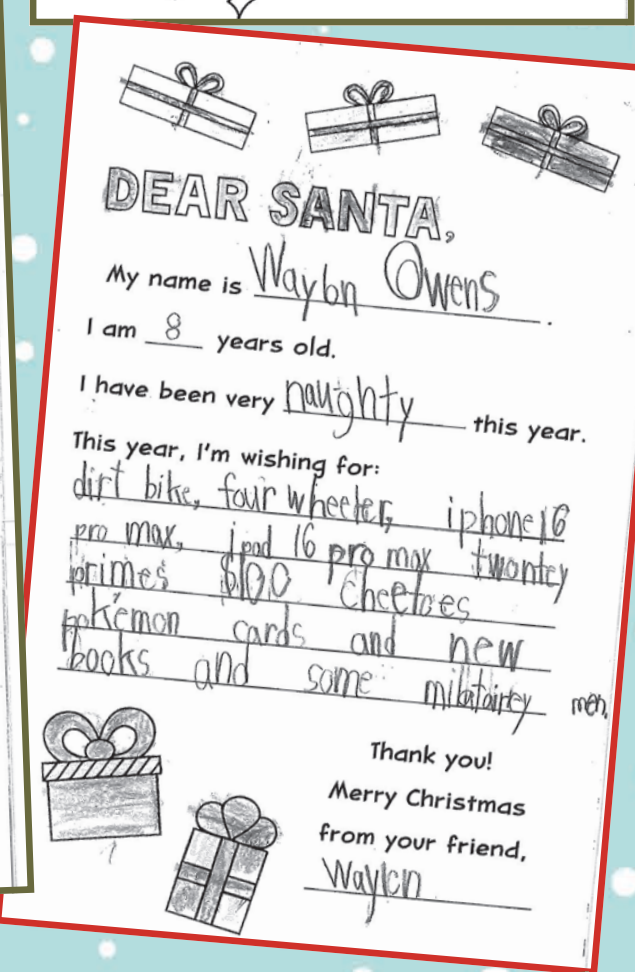 DEAR SANTA,
My name is Waylon Owens.
I am 8 years old.
I have been very naughty this year.
This year, I'm wishing for:
dirt bike, four wheeler, iphone 16
pro max, ipad 16 pro max twontey
primes $100 Cheetoes
pokémon cards and new
books and some milatairey men.
Thank you!
Merry Christmas
from your friend,
Waylon